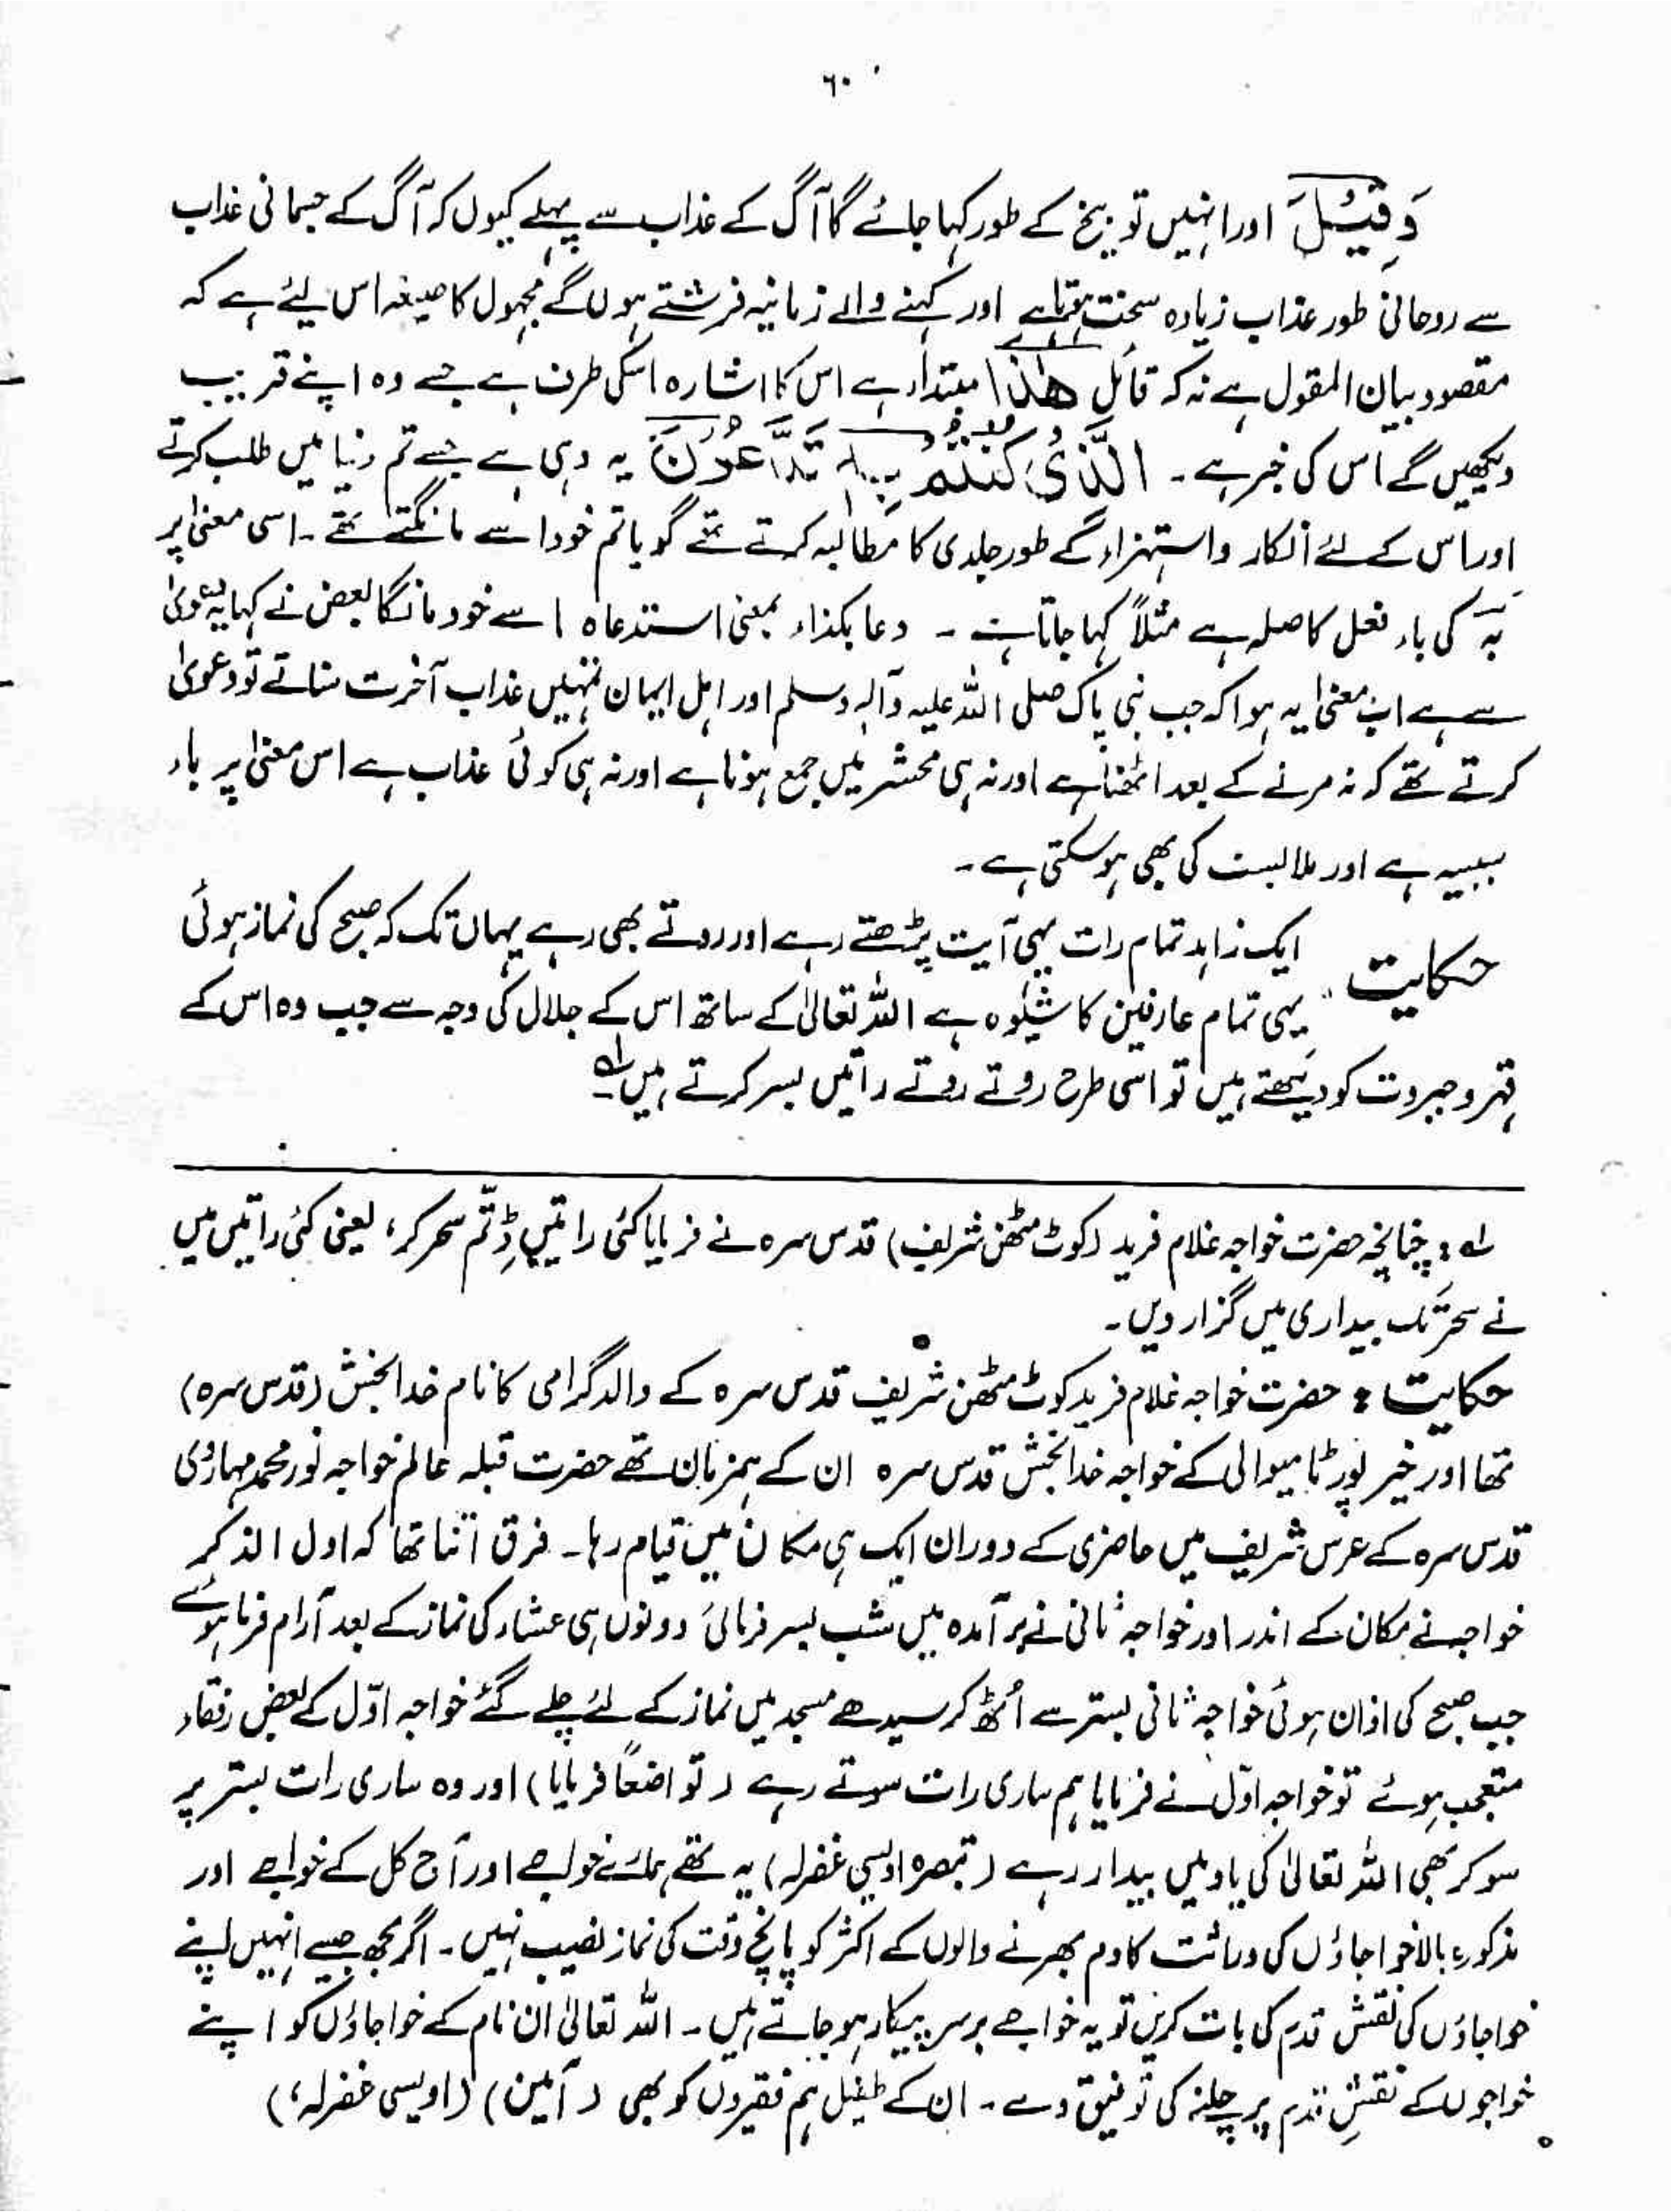 ٦٠
وَقِیْلَ اور انہیں توبیخ کے طور کہا جائے گا آگ کے عذاب سے پہلے کیوں کہ آگ کے جسمانی عذاب
سے روحانی طور عذاب زیادہ سخت ہوتا ہے اور کہنے والے زبانیہ فرشتے ہوں گے مجہول کا صیغہ اس لیئے ہے کہ
مقصود بیان المقول ہے نہ کہ قائل ھٰذَا مبتداء ہے اس کا اشارہ اسکی طرف ہے جسے وہ اپنے قریب
دیکھیں گے اس کی خبر ہے ۔ الَّذِیْ کُنْتُمْ بِہٖ تَدَّعُوْنَ یہ وہی ہے جسے تم دنیا میں طلب کرتے
اور اس کے لئے انکار و استہزاء کے طور جلدی کا مطالبہ کرتے تھے گویا تم خود اسے مانگتے تھے ۔ اسی معنیٰ پر
بہٖ کی باء فعل کا صلہ ہے مثلاً کہا جاتا ہے ۔ دعا بکذاء بمعنی استدعاہ اسے خود مانگا بعض نے کہا یہ دعویٰ
سے ہے اب معنیٰ یہ ہوا کہ جب نبی پاک صلی اللہ علیہ وآلہ وسلم اور اہل ایمان تمہیں عذاب آخرت سناتے تو دعویٰ
کرتے تھے کہ نہ مرنے کے بعد اٹھنا ہے اور نہ ہی محشر میں جمع ہونا ہے اور نہ ہی کوئی عذاب ہے اس معنیٰ پر باء
سببیہ ہے اور ملابست کی بھی ہو سکتی ہے ۔
حکایت ایک زاہد تمام رات یہی آیت پڑھتے رہے اور روتے بھی رہے یہاں تک کہ صبح کی نماز ہوئی
یہی تمام عارفین کا شیوہ ہے اللہ تعالیٰ کے ساتھ اس کے جلال کی وجہ سے جب وہ اس کے
قہر و جبروت کو دیکھتے ہیں تو اسی طرح روتے روتے راتیں بسر کرتے ہیں لہ
لہ : چنانچہ حضرت خواجہ غلام فرید (کوٹ مٹھن شریف) قدس سرہ نے فرمایا کئی راتیں ڈِتّم سحر کر ، یعنی کئی راتیں میں
نے سحر تک بیداری میں گزار دیں ۔
حکایت : حضرت خواجہ غلام فرید کوٹ مٹھن شریف قدس سرہ کے والد گرامی کا نام خدا بخش (قدس سرہ)
تھا اور خیر پور ٹامیوالی کے خواجہ خدا بخش قدس سرہ ان کے ہمزمان تھے حضرت قبلہ عالم خواجہ نور محمد مہاروی
قدس سرہ کے عرس شریف میں حاضری کے دوران ایک ہی مکان میں قیام رہا ۔ فرق اتنا تھا کہ اول الذکر
خواجہ نے مکان کے اندر اور خواجہ ثانی نے برآمدہ میں شب بسر فرمائی دونوں ہی عشاء کی نماز کے بعد آرام فرما ہوئے
جب صبح کی اذان ہوئی خواجہ ثانی بستر سے اُٹھ کر سیدھے مسجد میں نماز کے لئے چلے گئے خواجہ اوّل کے بعض رفقاء
متعجب ہوئے تو خواجہ اوّل نے فرمایا ہم ساری رات سوتے رہے (تواضعاً فرمایا) اور وہ ساری رات بستر پر
سو کر بھی اللہ تعالیٰ کی یاد میں بیدار رہے (تبصرہ اویسی غفرلہ) یہ تھے ہمارے خواجے اور آج کل کے خواجے اور
مذکورہ بالا خواجاؤں کی وراثت کا دم بھرنے والوں کے اکثر کو پانچ وقت کی نماز نصیب نہیں ۔ اگر مجھ جیسے انہیں اپنے
خواجاؤں کی نقش قدم کی بات کریں تو یہ خواجے برسر پیکار ہو جاتے ہیں ۔ اللہ تعالیٰ ان نام کے خواجاؤں کو اپنے
خواجوں کے نقشِ قدم پر چلنے کی توفیق دے ۔ ان کے طفیل ہم فقیروں کو بھی (آمین) (اویسی غفرلہ،)